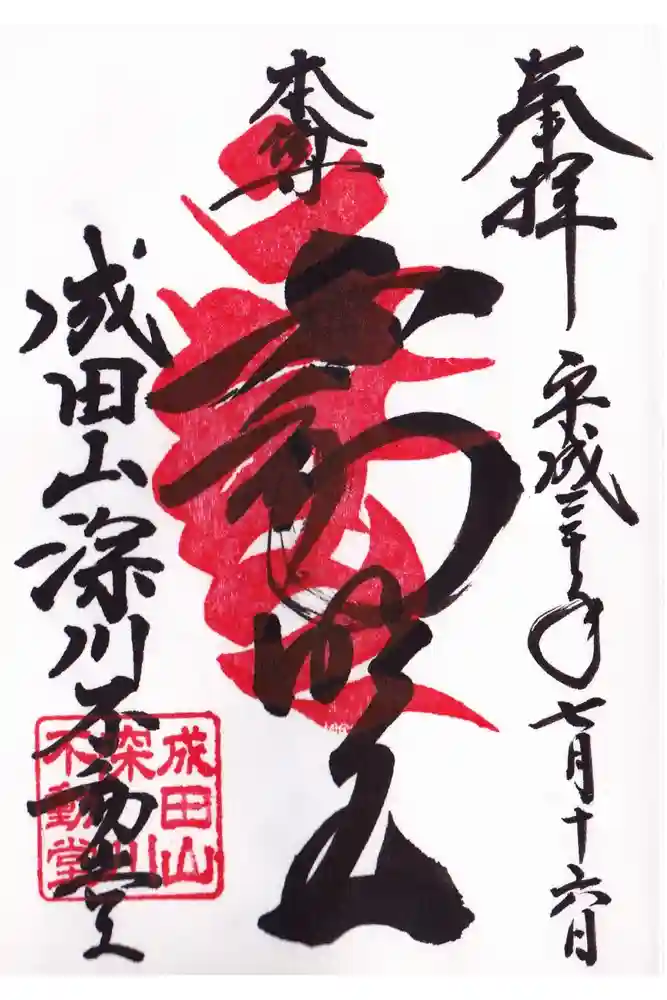 奉拝
平成三十年七月十六日
本尊
不動明王
成田山深川不動堂
成田山
深川
不動堂